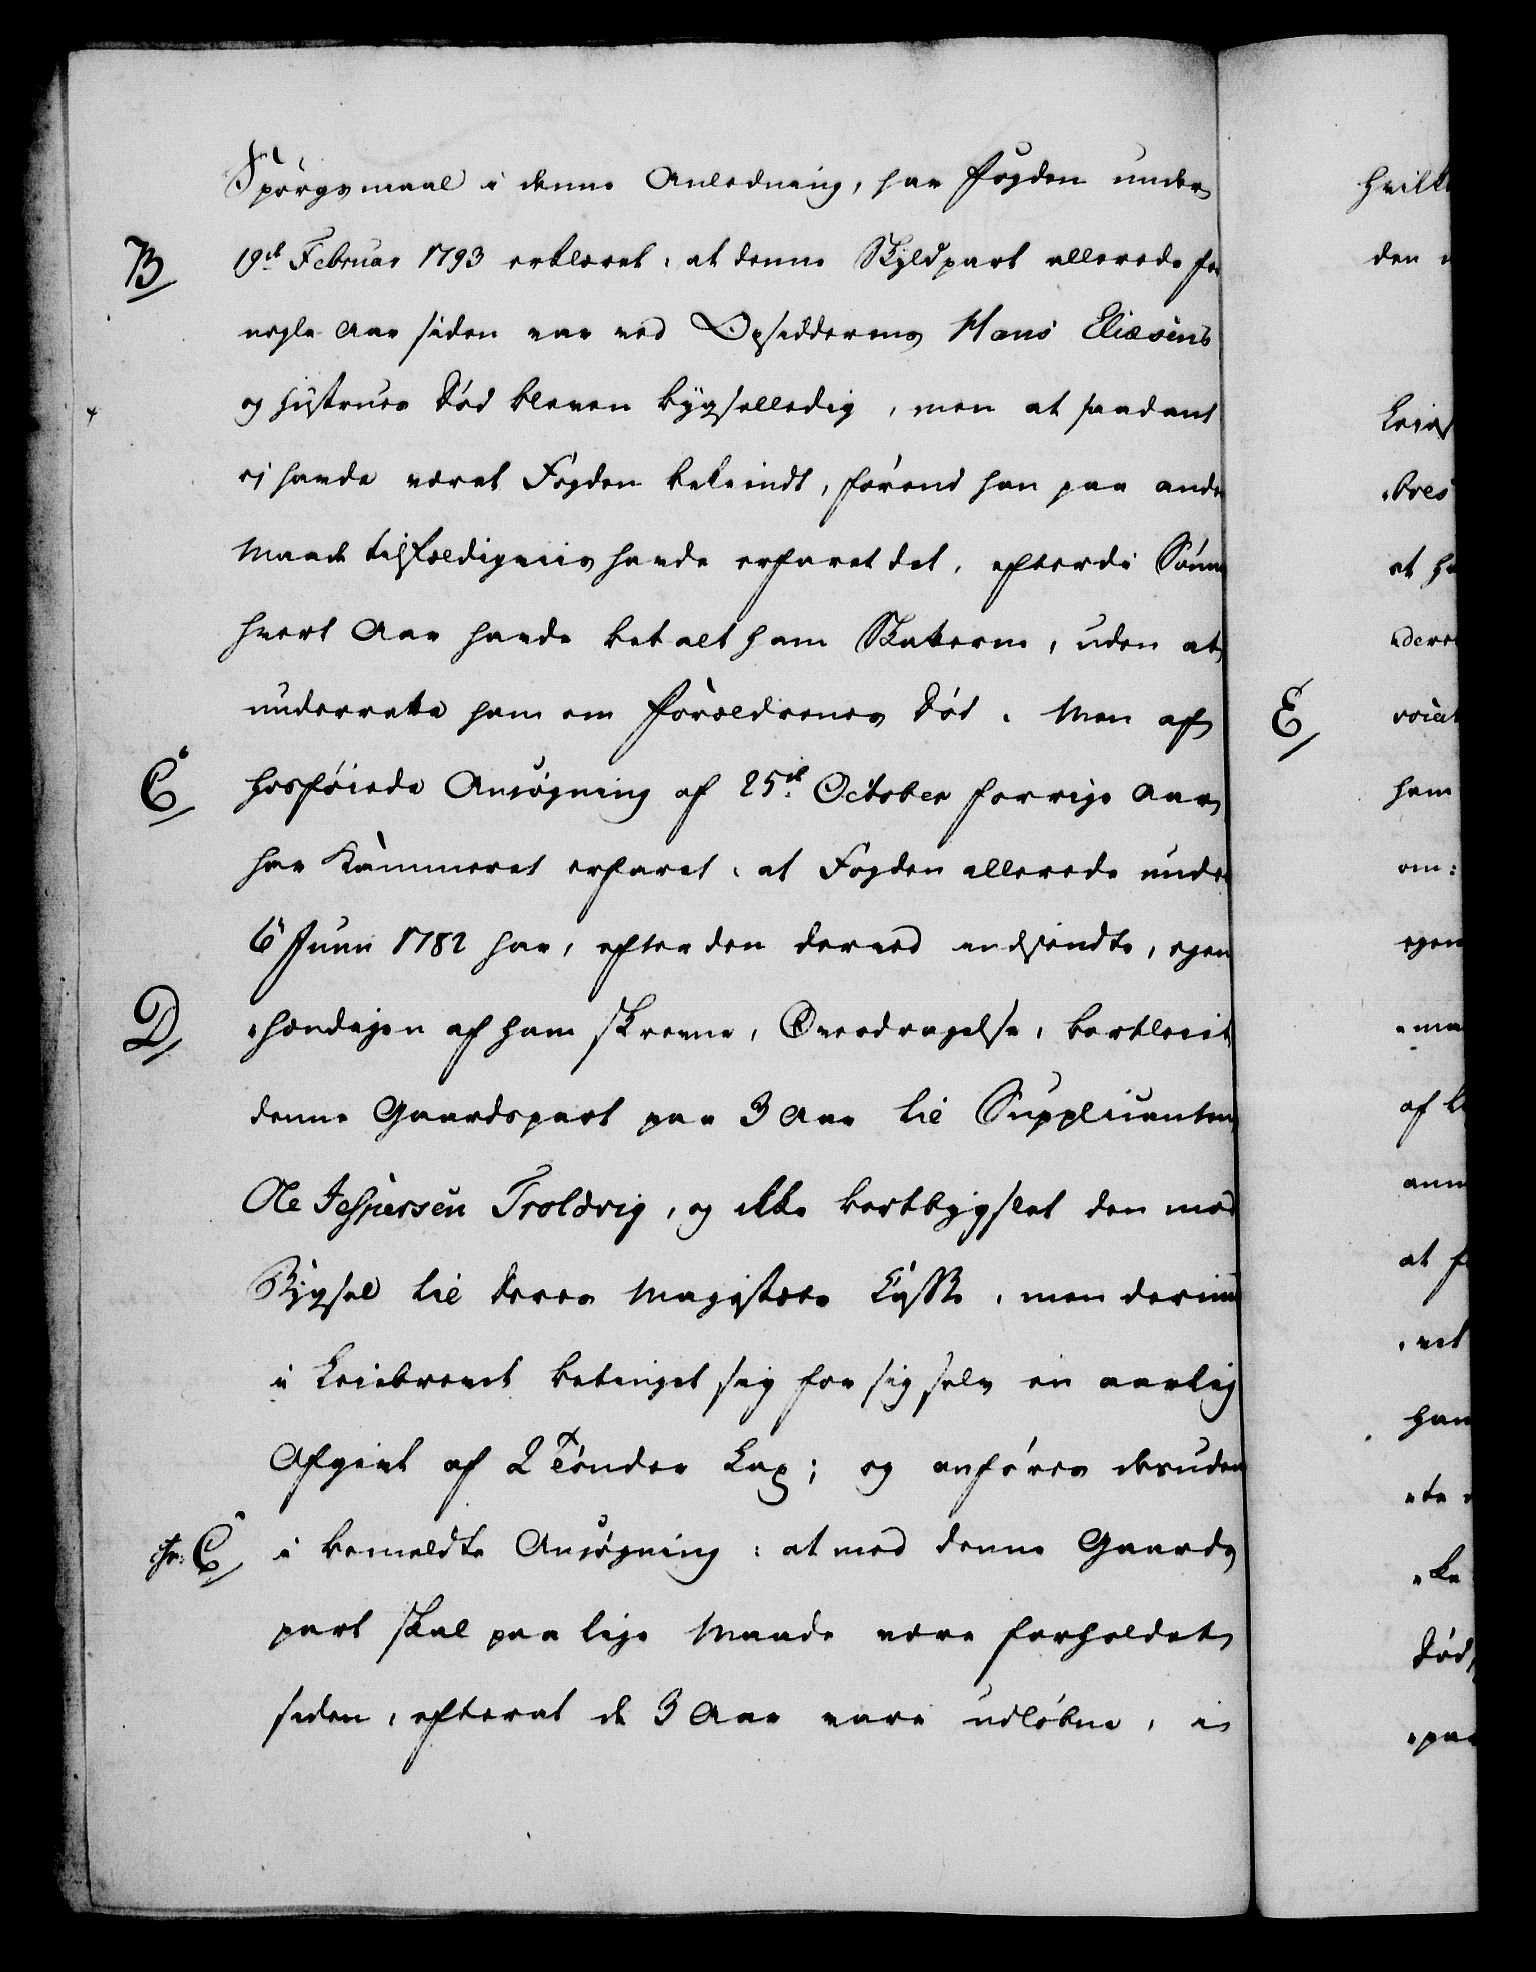 Spørgsmaal i denne Anledning, har Fogden under
B/ 19de Februar 1793 erklæret: at denne Skyldpart allerede for
nogle Aar siden var ved Opsidderens Hans Eliæsens
og Hustrues Død bleven bygselledig, men at saadant
ej havde været Fogden bekiendt, førend han paa anden
Maade tilfældigviis havde erfaret det, efterdi Sønnen
hvert Aar havde betalt ham Skatterne, uden at
underrette ham om Forældrenes Død. Men af
C/ hosføiede Ansøgning af 25de October forrige Aar
har Kammeret erfaret: at Fogden allerede under
6te Junii 1782 har, efter den derved indsendte, egen
D/ hændigen af ham skrevne, Overdragelse, bortleiet
denne Gaardspart paa 3 Aar til Supplicanten
Ole Jespersen Troldvig, og ikke bortbygslet den mod
Bygsel til Deres Majestæts Casse, men derimod
i Leiebrevet betinget sig for sig selv en aarlig
Afgivt af 2 Tønder Lax; og anføres desuden
cfr: C/ i bemeldte Ansøgning: at med denne Gaards
part skal paa lige Maade være forholdet
siden, efterat de 3 Aar vare udløbne, i
hvilke
den
Leies
bres
et ha
E/
ham
om:
egen
ma
af
ann
at f
vet
han
te
ke
Død
paa